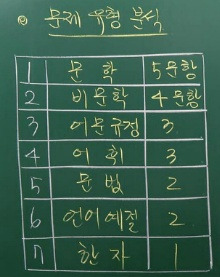 ◎ 문제 유형 분석
1 문학 5문항
2 비문학 4문항
3 어문규정 3
4 어휘 3
5 문법 2
6 언어예절 2
7 한자 1